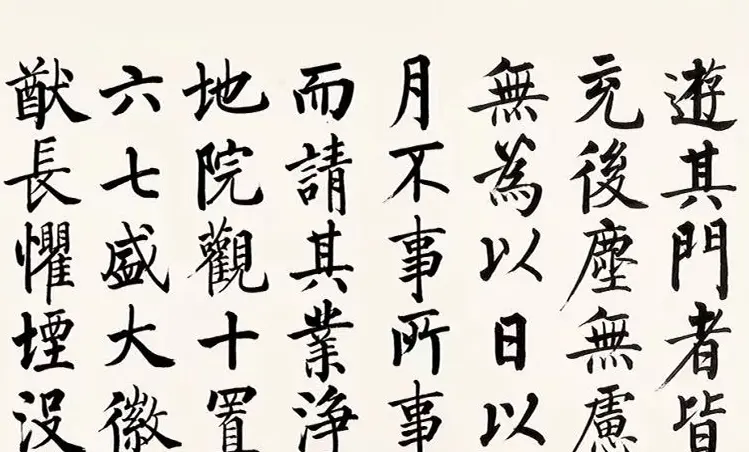 遊其門者皆
充後塵無慮
無為以日以
月不事所事
而請其業淨
地院觀十置
六七盛大徽
猷長懼堙没